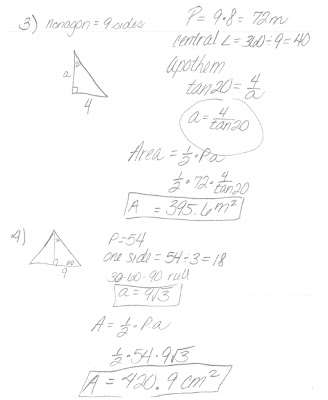 3) nonagon = 9 sides
P = 9·8 = 72m
central ∠ = 360÷9 = 40
apothem
tan20 = 4/a
a
4
a = 4/tan20
Area = 1/2·Pa
1/2·72·4/tan20
A = 395.6m²
4)
P=54
one side = 54÷3=18
30-60-90 rull
a = 9√3
60
9
A = 1/2·P·a
1/2·54·9√3
A = 420.9cm²